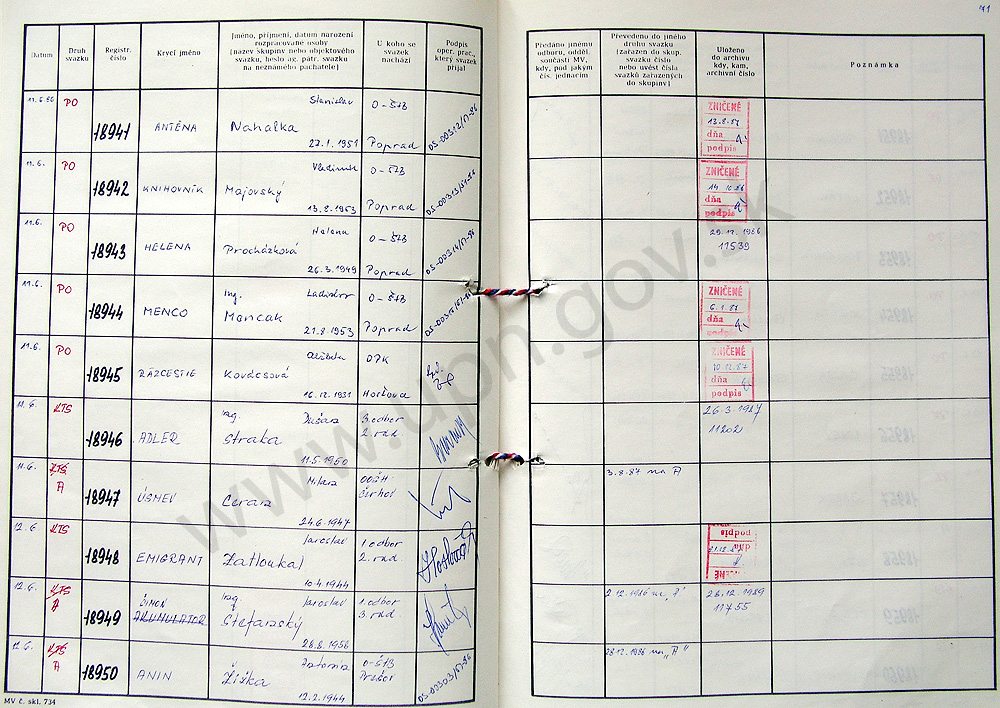 71
Datum
Druh svazku
Registr. číslo
Krycí jméno
Jméno, příjmení, datum narození rozpracované osoby (název skupiny nebo objektového svazku, heslo ag. pátr. svazku na neznámého pachatele)
U koho se svazek nachází
Podpis oper. prac., který svazek přijal
Předáno jinému odboru, odděl. součásti MV, kdy, pod jakým čís. jednacím
Převedeno do jiného druhu svazku (zařazen do skup. svazků číslo nebo uvést čísla svazků zařazených do skupiny)
Uloženo do archivu kdy, kam, archivní číslo
Poznámka
11.6.86 PO 18941 ANTÉNA Stanislav Nahalka 27.1.1951 O-ŠTB Poprad
ZNIČENÉ 13.8.87 dňa podpis
11.6. PO 18942 KNIHOVNÍK Vladimír Majovský 13.8.1953 O-ŠTB Poprad
ZNIČENÉ dňa podpis
11.6. PO 18943 HELENA Helena Procházková 26.3.1949 O-ŠTB Poprad
29.12.1986 11539
11.6. PO 18944 MENCO Ing. Ladislav Mencak 21.8.1953 O-ŠTB Poprad
ZNIČENÉ 6.1.87 dňa podpis
11.6. PO 18945 RÁZCESTIE Alžbeta Kovácsová 16.12.1931 OPK
ZNIČENÉ 10.12.87 dňa podpis
11.6. KTS 18946 ADLER Ing. Dušan Straka 11.5.1950 3. odbor 2. rad.
26.3.1987 11202
11.6. KTS A 18947 ÚSMEV Milan Ceran 24.6.1947 OOČH Čirhov
3.8.87 na A
12.6. KTS 18948 EMIGRANT Jaroslav Zatloukal 10.4.1944 1. odbor 2. rad.
podpis dňa 21.12.87 ZNIČENÉ
12.6. KTS A 18949 ŠIMON AKUMULATOR Ing. Jaroslav Štefanský 28.8.1956 1. odbor 3. rad
2.12.1986 na "A" 28.12.1989 11755
12.6. KTS A 18950 ANIN Antonín Žižka 12.2.1944 O-ŠTB Prešov OS-00303/57-86
28.12.1986 na "A"
MV č. skl. 734
www.upn.gov.sk